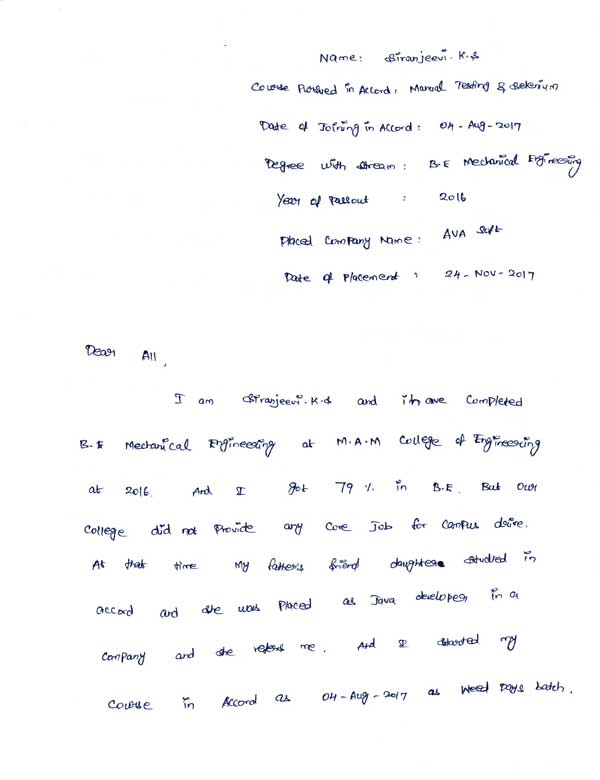 Name: Siranjeevi.K.S
Course Pursued in Accord: Manual Testing & Selenium
Date of Joining in Accord: 04-Aug-2017
Degree with stream: B.E Mechanical Engineering
Year of Passout : 2016
Placed Company Name: AVA Soft
Date of Placement : 24-Nov-2017
Dear All,
I am Siranjeevi.K.S and i have Completed
B.E Mechanical Engineering at M.A.M College of Engineering
at 2016. And I got 79 % in B.E. But our
College did not Provide any Core Job for Campus drive.
At that time my father's friend daughters studied in
accord and she was Placed as Java developer in a
Company and she refers me. And I started my
Course in Accord as 04-Aug-2017 as Weed Days batch.